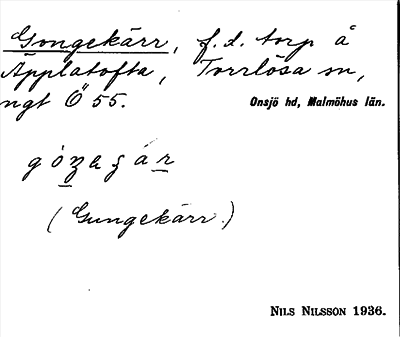 Gongekärr, f.d. torp å
Äpplatofta, Torrlösa sn,
ngt Ö 55. Onsjö hd, Malmöhus län.
(Gungekärr)
NILS NILSSON 1936.